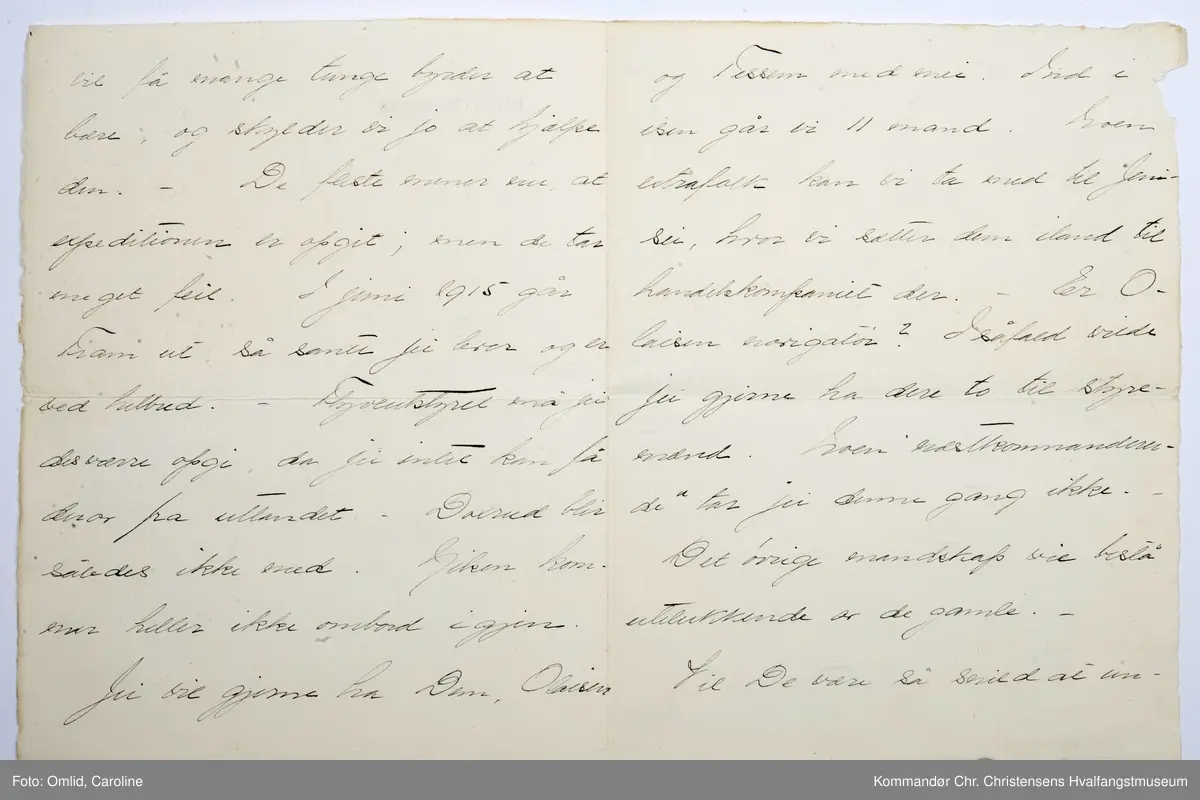 vil få mange tunge byrder at
bære, og skylder vi jo at hjælpe
den. – De fleste mener nu, at
expeditionen er opgit; men de tar
meget feil. I juni 1915 går
Fram ut, så sant jei lever og er
ved helbred. – Flyveutstyret må jei
desværre opgi, da jei intet kan få
derav fra utlandet. – Doxrud blir
således ikke med. Nilsen kom-
mer heller ikke ombord igjen.
Jei vil gjerne ha Dem, Olaisen
og Tessem med mei. Ind i
isen går vi 11 mand. Noen
extrafolk kan vi ta med til Jeni-
sei, hvor vi sætter dem iland til
handelskompaniet der. – Er O-
laisen navigatør? I såfald vilde
jei gjerne ha dere to til styre-
mænd. Noen næstkommanderen-
de" tar jei denne gang ikke. –
Det øvrige mandskap vil bestå
utelukkende av de gamle. –
Vil De være så snild at un-
Foto: Omlid, Caroline
Kommandør Chr. Christensens Hvalfangstmuseum